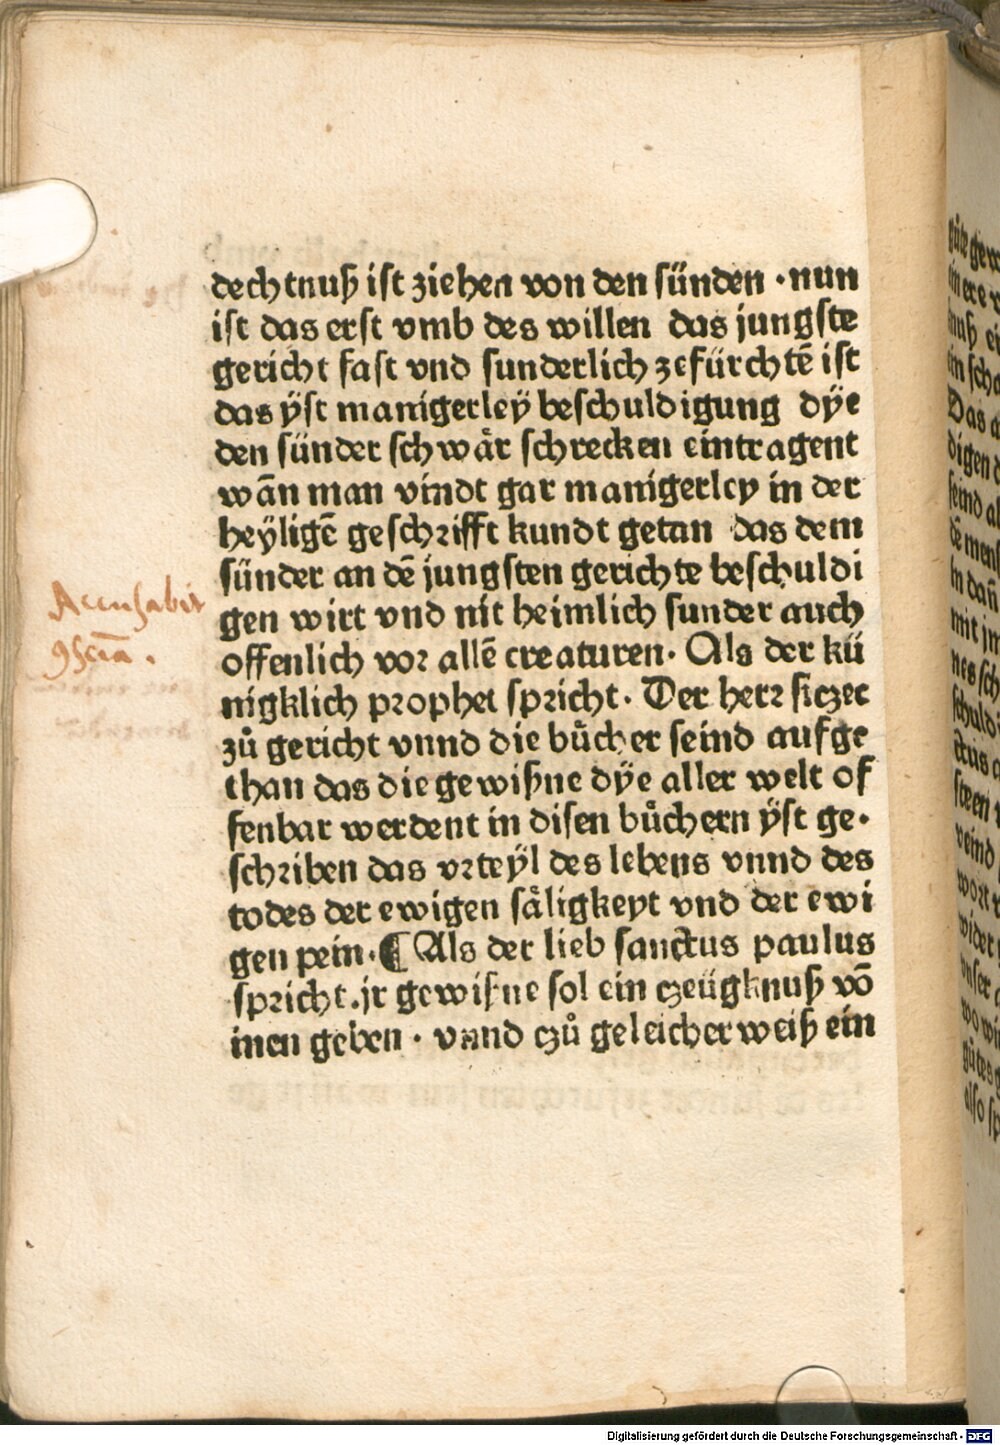 dechtnuß ist ziehen von den sünden · nun
ist das erst vmb des willen das jungste
gericht fast vnd sunderlich zefürchtē ist
das ÿst manigerleÿ beschuldigung dÿe
den sünder schwår schrecken eintragent
wān man vindt gar manigerley in der
heÿligē geschrifft kundt getan das dem
sünder an dē jungsten gerichte beschuldi
gen wirt vnd nit heimlich sunder auch
offenlich vor allē creaturen. Als der kü
nigklich prophet spricht. Der herr siczet
zů gericht vnnd die bůcher seind aufge
than das die gewißne dÿe aller welt of
fenbar werdent in disen bůchern ÿst ge·
schriben das vrteÿl des lebens vnnd des
todes der ewigen såligkeyt vnd der ewi
gen pein. ¶ Als der lieb sanctus paulus
spricht. jr gewißne sol ein czeügknuß vō
inen geben · vnnd czů geleicher weiß ein
Accusabit
ꝯsciā .
Digitalisierung gefördert durch die Deutsche Forschungsgemeinschaft - DFG